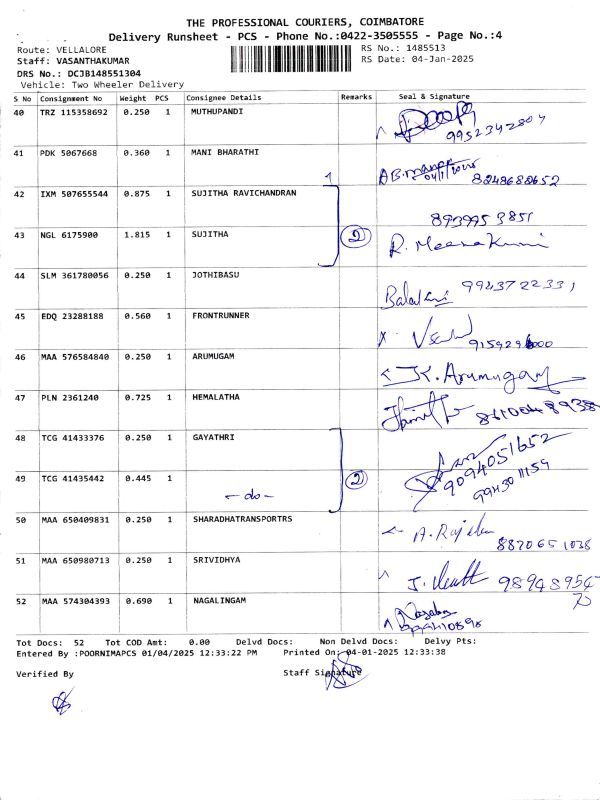 THE PROFESSIONAL COURIERS, COIMBATORE
Delivery Runsheet - PCS - Phone No.:0422-3505555 - Page No.:4
Route: VELLALORE RS No.: 1485513
Staff: VASANTHAKUMAR RS Date: 04-Jan-2025
DRS No.: DCJB148551304
Vehicle: Two Wheeler Delivery
S No Consignment No Weight PCS Consignee Details Remarks Seal & Signature
40 TRZ 115358692 0.250 1 MUTHUPANDI
9952342804
41 PDK 5067668 0.360 1 MANI BHARATHI
8248688652
1
42 IXM 507655544 0.875 1 SUJITHA RAVICHANDRAN
8939953851
43 NGL 6175900 1.815 1 SUJITHA 2 R. Meenakumi
44 SLM 361780056 0.250 1 JOTHIBASU
9943722331
45 EDQ 23288188 0.560 1 FRONTRUNNER
46 MAA 576584840 0.250 1 ARUMUGAM K. Arumugam
47 PLN 2361240 0.725 1 HEMALATHA
48 TCG 41433376 0.250 1 GAYATHRI
9094051652
49 TCG 41435442 0.445 1 -do- 2
50 MAA 650409831 0.250 1 SHARADHATRANSPORTRS
8870651038
51 MAA 650980713 0.250 1 SRIVIDHYA
52 MAA 574304393 0.690 1 NAGALINGAM
Tot Docs: 52 Tot COD Amt: 0.00 Delvd Docs: Non Delvd Docs: Delvy Pts:
Entered By :POORNIMAPCS 01/04/2025 12:33:22 PM Printed On: 04-01-2025 12:33:38
Verified By Staff Signature